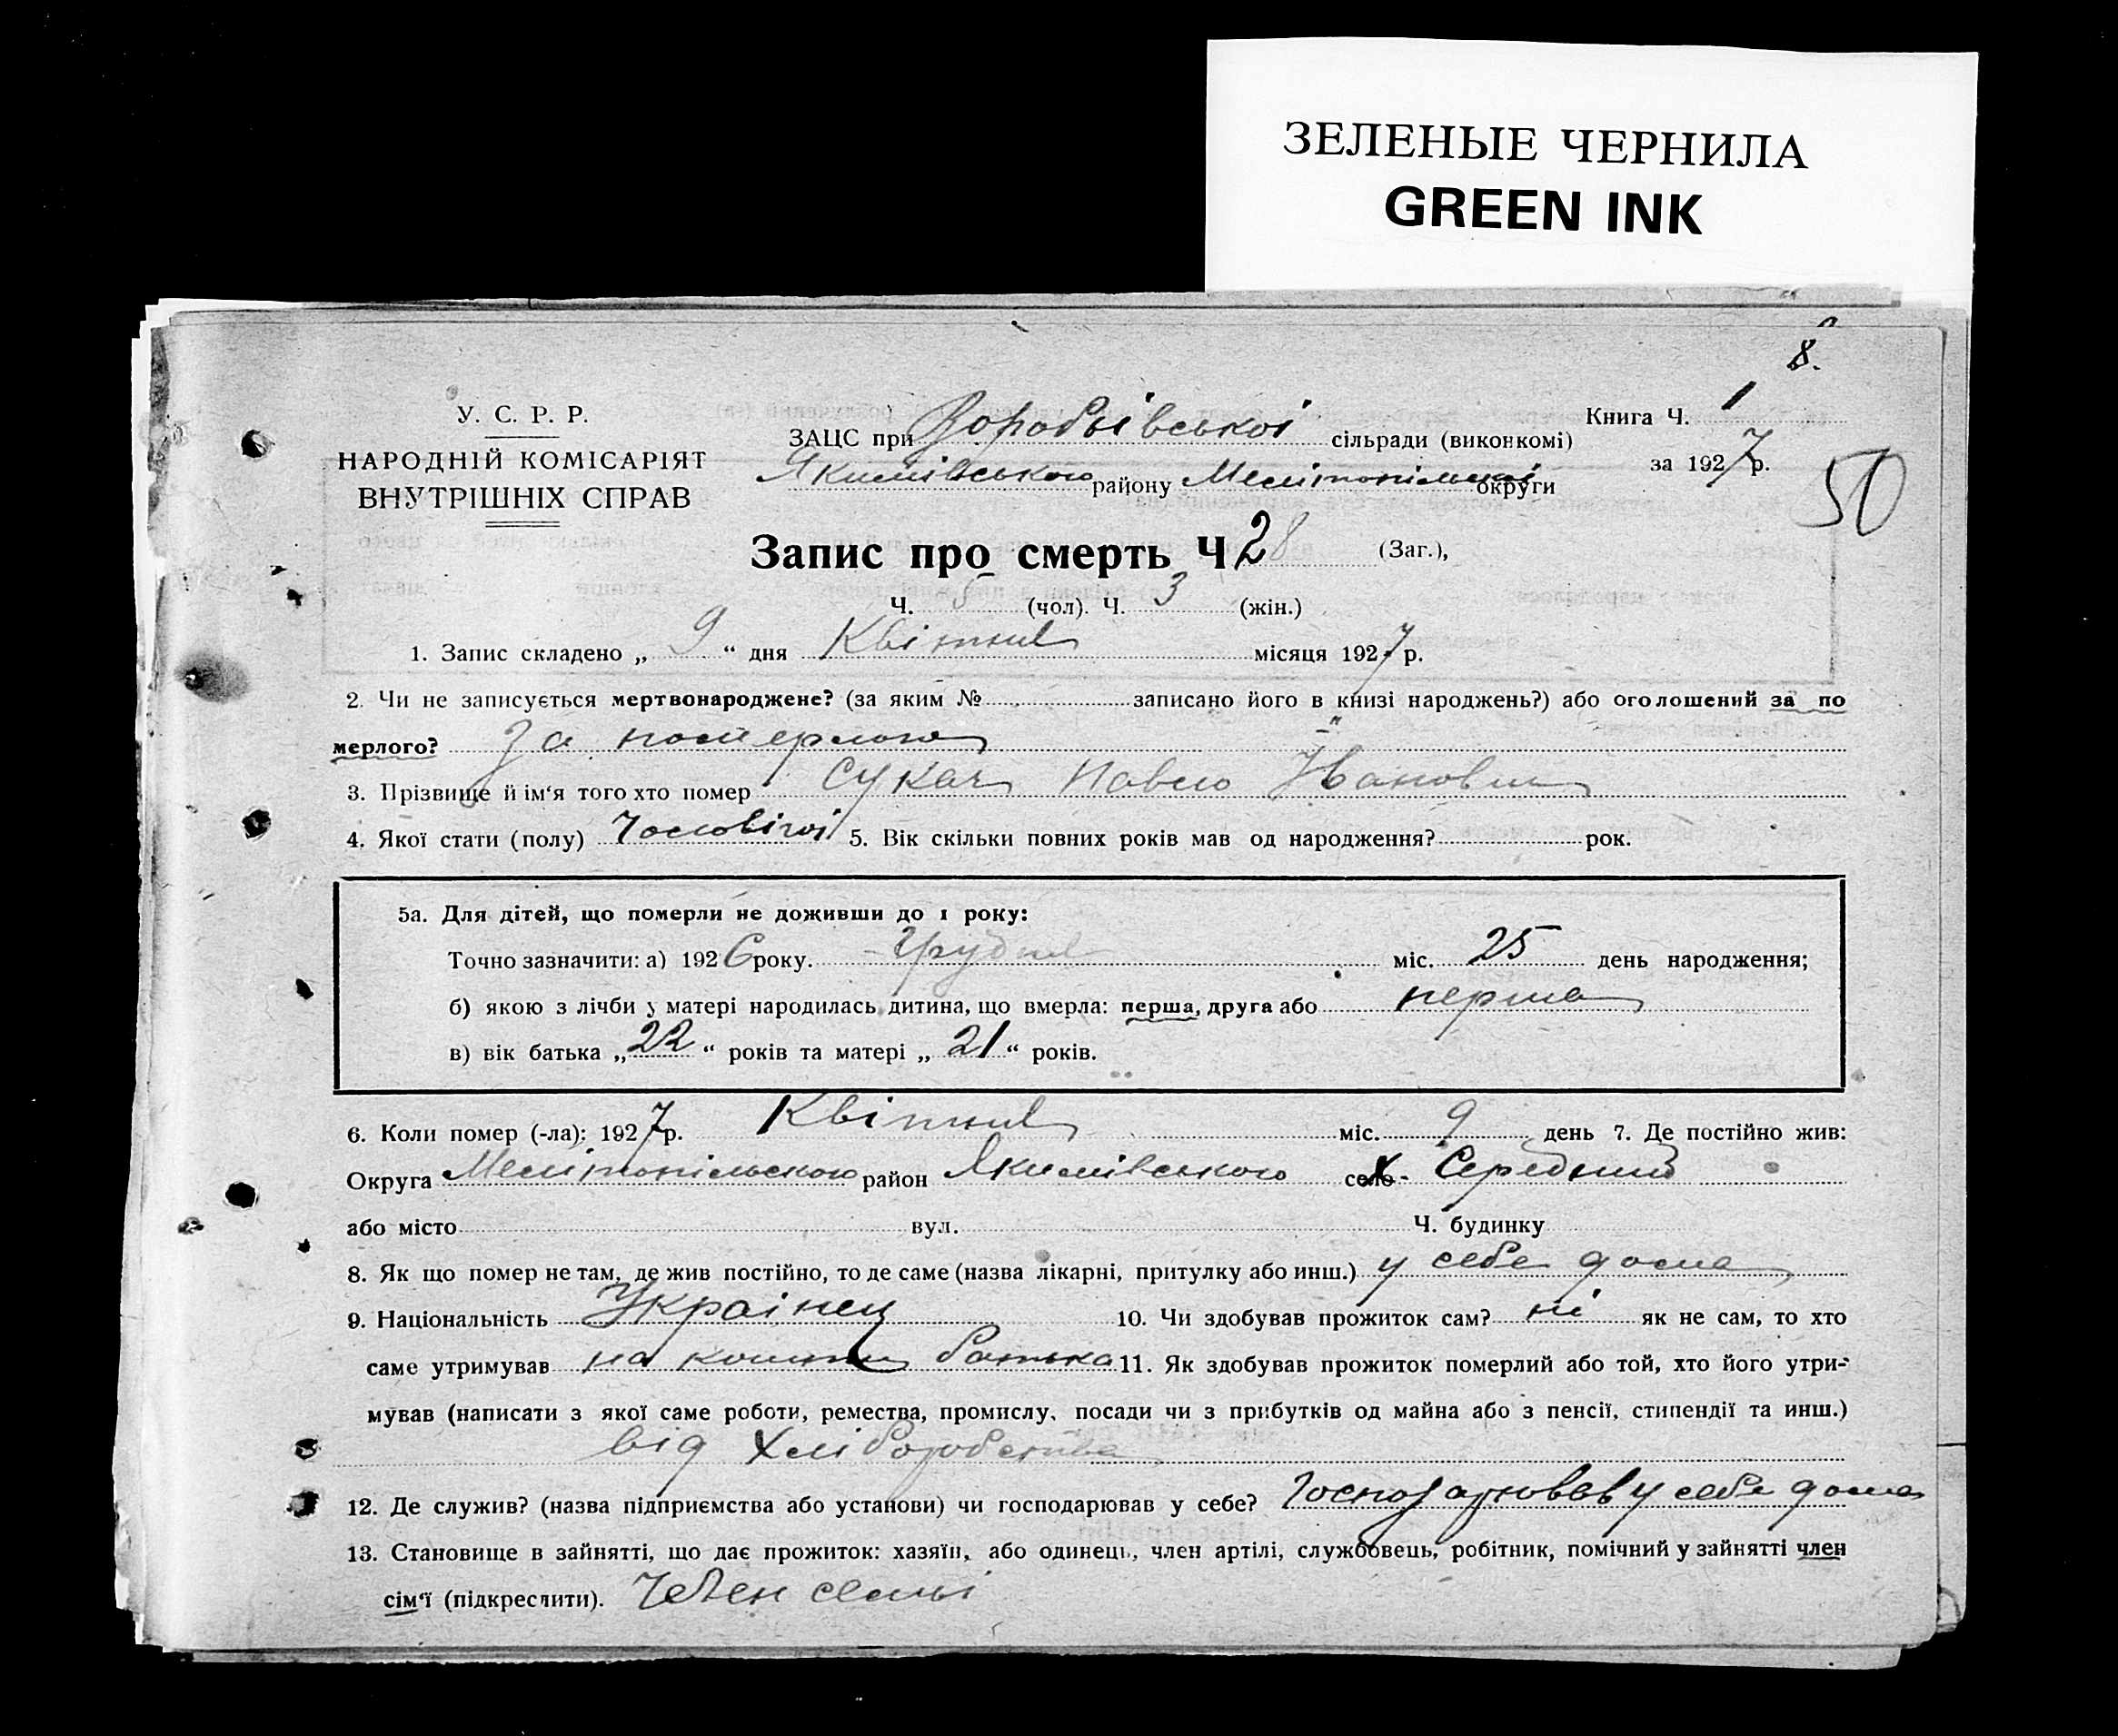 ЗЕЛЕНЫЕ ЧЕРНИЛА
GREEN INK
8.
У. С. Р. Р.
НАРОДНІЙ КОМІСАРІЯТ
ВНУТРІШНІХ СПРАВ
Книга Ч. 1
за 1927 р.
50
ЗАЦС при Воробьівської сільради (виконкомі)
Якимівського району Мелітопільської округи
Запис про смерть Ч 28 (Заг.),
Ч. 5 (чол). Ч. 3 (жін.)
1. Запис складено „ 9 “ дня Квітня місяця 1927 р.
2. Чи не записується мертвонароджене? (за яким № записано його в книзі народжень?) або оголошений за по
мерлого? За померлого
3. Прізвище й ім‘я того хто помер Сукач Павло Іванович
4. Якої стати (полу) Чоловічої 5. Вік скільки повних років мав од народження? рок.
5а. Для дітей, що померли не доживши до 1 року:
Точно зазначити: а) 1926 року. Грудня міс. 25 день народження;
б) якою з лічби у матері народилась дитина, що вмерла: перша, друга або перша
в) вік батька „ 22 “ років та матері „ 21 “ років.
6. Коли помер (-ла): 1927 р. Квітня міс. 9 день 7. Де постійно жив:
Округа Мелітопільського район Якимівського село х. Середний
або місто вул. Ч. будинку
8. Як що помер не там, де жив постійно, то де саме (назва лікарні, притулку або инш.) у себе дома
9. Національність Українец 10. Чи здобував прожиток сам? ні як не сам, то хто
саме утримував на кошти батька 11. Як здобував прожиток померлий або той, хто його утри-
мував (написати з якої саме роботи, ремества, промислу, посади чи з прибутків од майна або з пенсії, стипендії та инш.)
від Хліборобства
12. Де служив? (назва підприємства або установи) чи господарював у себе? Господарював у себе дома
13. Становище в зайнятті, що дає прожиток: хазяїн, або одинець, член артілі, службовець, робітник, помічний у зайнятті член
сім‘ї (підкреслити). Член семьі